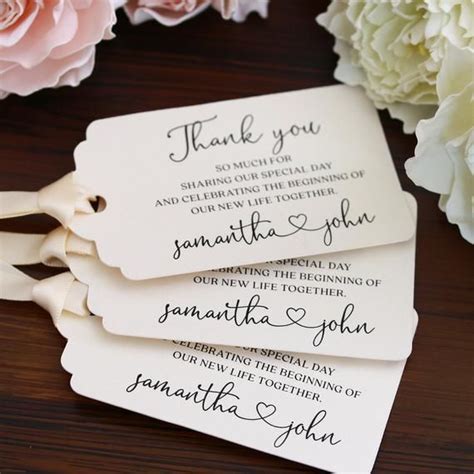 Thank you
SO MUCH FOR
SHARING OUR SPECIAL DAY
AND CELEBRATING THE BEGINNING OF
OUR NEW LIFE TOGETHER.
samantha♡john
OUR SPECIAL DAY
CELEBRATING THE BEGINNING OF
OUR NEW LIFE TOGETHER.
samantha♡john
CELEBRATING THE BEGINNING OF
OUR NEW LIFE TOGETHER.
samantha♡john